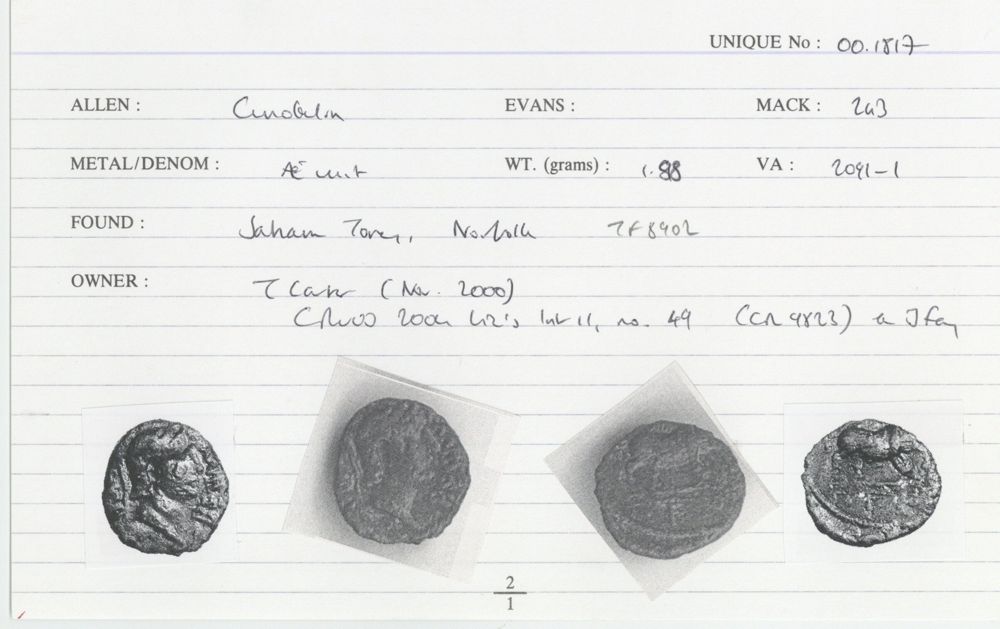 UNIQUE No : 00.1817
ALLEN : Cunobelin EVANS : MACK : 243
METAL/DENOM : Æ unit WT. (grams) : 1.88 VA : 2091-1
FOUND : Saham Toney, Norfolk TF8902
OWNER : (Nov. 2000)
no. 49 (CR 9823)
2
1